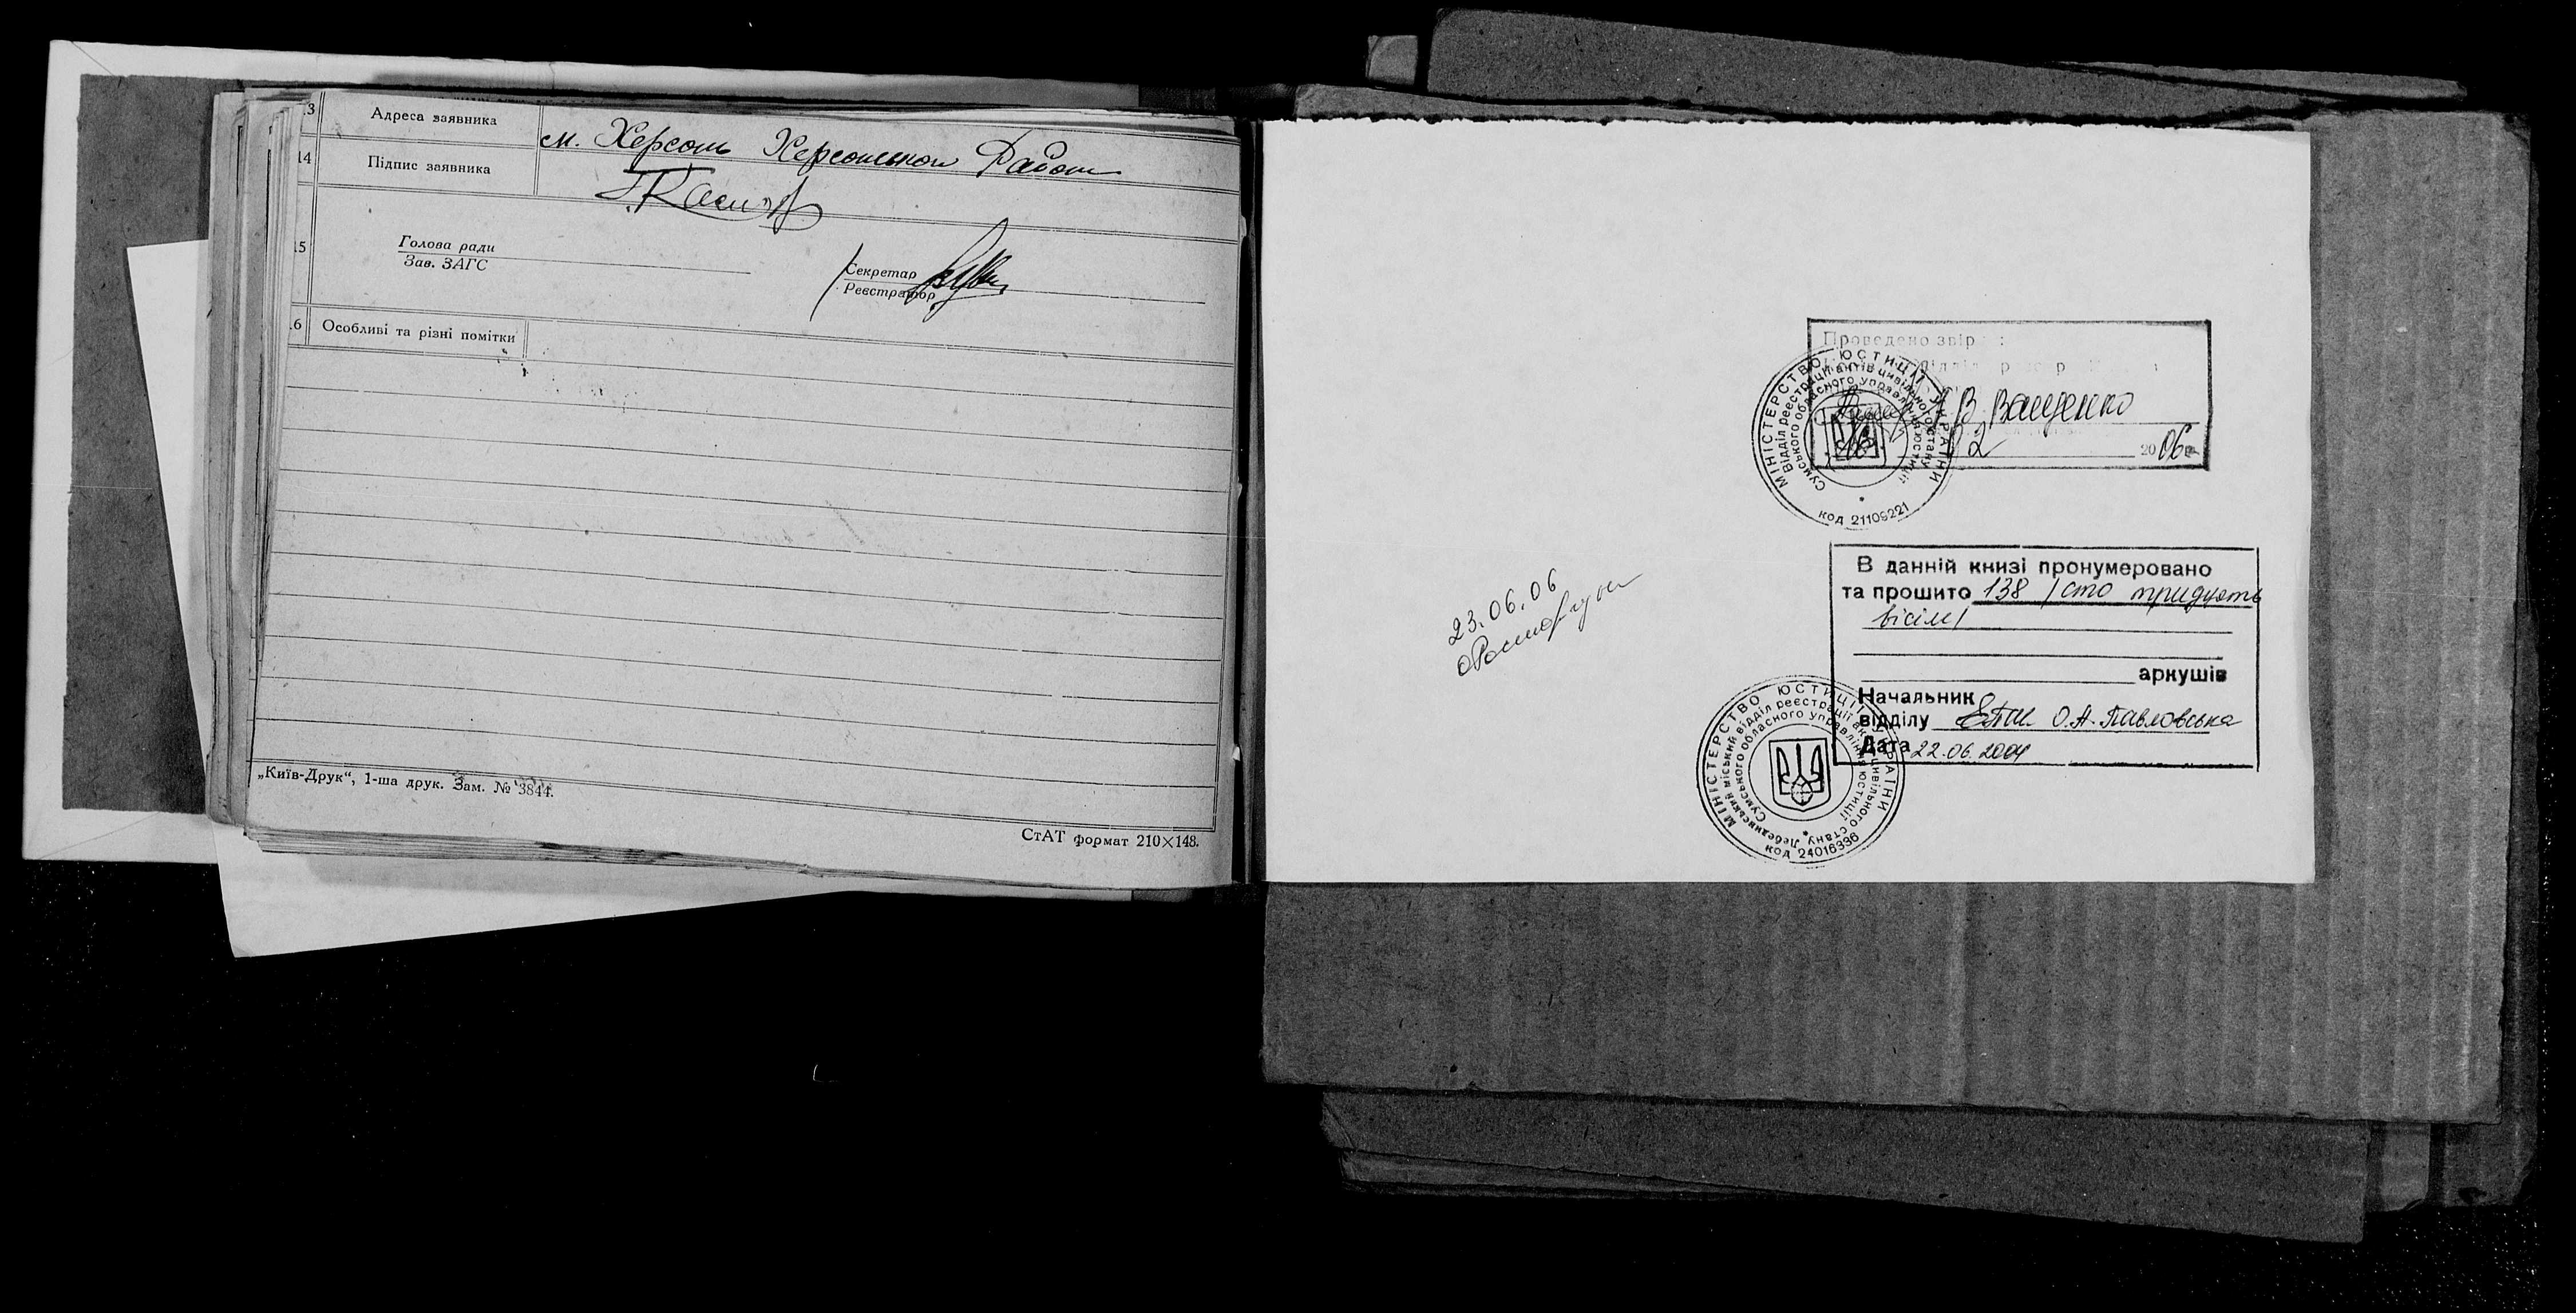 13 Адреса заявника м. Херсон Херсонськои
14 Підпис заявника
15 Голова ради
Зав. ЗАГС
Секретар
Реєстратор
16 Особливі та різні помітки
„Київ-Друк“, 1-ша друк. Зам. № 3844.
СтАТ формат 210×148.
Проведено звір
В. Ващенко
02 2006р.
МІНІСТЕРСТВО ЮСТИЦІЇ УКРАЇНИ
Відділ реєстрації актів цивільного стану
Сумського обласного управління юстиції
код 21109221
23.06.06
В данній книзі пронумеровано
та прошито 138 /сто тридцять
вісім/
аркушів
Начальник
відділу О.А. Павловська
Дата 22.06.2004
МІНІСТЕРСТВО ЮСТИЦІЇ УКРАЇНИ
Лебединський міський відділ реєстрації актів цивільного стану
Сумського обласного управління юстиції
код 24016336